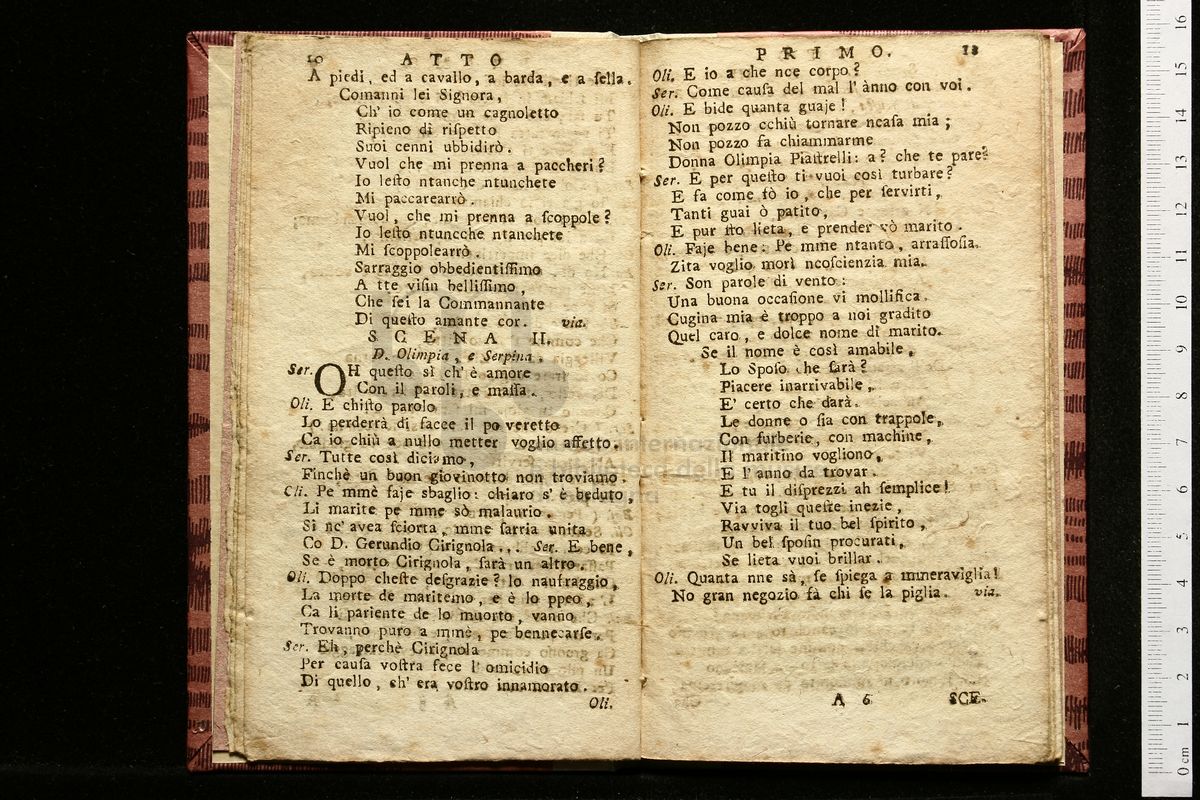 10 ATTO
A piedi, ed a cavallo, a barda, e a ſella.
Comanni lei Signora,
Ch' io come un cagnoletto
Ripieno di riſpetto
Suoi cenni ubbidirò.
Vuol che mi prenna a paccheri?
Io leſto ntanche ntunchete
Mi paccarearrò.
Vuol, che mi prenna a ſcoppole?
Io leſto ntuncche ntanchete
Mi ſcoppolearrò.
Sarraggio obbedientiſſimo
A tte viſin belliſſimo,
Che ſei la Commannante
Di queſto amante cor. via.
SCENA II.
D. Olimpia, e Serpina.
Ser. OH queſto sì ch' è amore
Con il paroli, e maſſa.
Oli. E chiſto parolo
Lo perderrà di facce il poveretto
Ca io chiù a nullo metter voglio affetto.
Ser. Tutte così diciamo,
Finchè un buon giovinotto non troviamo.
Oli. Pe mmè faje sbaglio: chiaro s' è beduto,
Li marite pe mme sò malaurio.
Sì nc' avea ſciorta, mme ſarria unita
Co D. Gerundio Cirignola... Ser. E bene,
Se è morto Cirignola, ſarà un altro.
Oli. Doppo cheſte deſgrazie? lo naufraggio,
La morte de maritemo, e è lo ppeo,
Ca li pariente de lo muorto, vanno
Trovanno puro a mmè, pe bennecarſe.
Ser. Eh, perchè Cirignola
Per cauſa voſtra fece l' omicidio
Di quello, ch' era voſtro innamorato.
Oli.
PRIMO. 11
Oli. E io a che nce corpo?
Ser. Come cauſa del mal l' ànno con voi.
Oli. E bide quanta guaje!
Non pozzo cchiù tornare ncaſa mia;
Non pozzo fa chiammarme
Donna Olimpia Piaſtrelli: a? che te pare?
Ser. E per queſto ti vuoi così turbare?
E fa come fò io, che per ſervirti,
Tanti guai ò patito,
E pur ſto lieta, e prender vò marito.
Oli. Faje bene: Pe mme ntanto, arraſſoſia.
Zita voglio morì ncoſcienzia mia.
Ser. Son parole di vento:
Una buona occaſione vi mollifica.
Cugina mia è troppo a noi gradito
Quel caro, e dolce nome di marito.
Se il nome è così amabile,
Lo Spoſo che ſarà?
Piacere inarrivabile,
E' certo che darà.
Le donne o ſia con trappole,
Con furberie, con machine,
Il maritino vogliono,
E l' anno da trovar.
E tu il diſprezzi ah ſemplice!
Via togli queſte inezie,
Ravviva il tuo bel ſpirito,
Un bel ſpoſin procurati,
Se lieta vuoi brillar.
Oli. Quanta nne sà, ſe ſpiega a mmeraviglia!
No gran negozio fà chi ſe la piglia. via.
A 6 SCE-